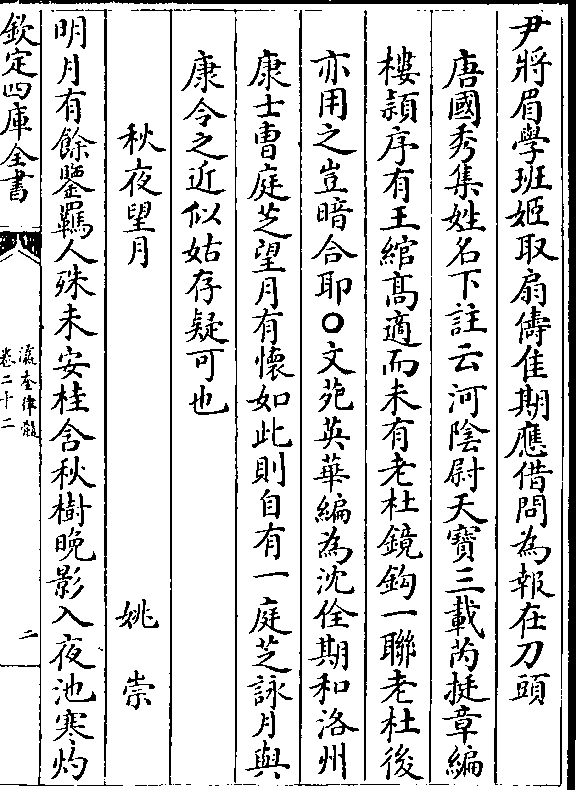 尹將眉學班姬取扇儔佳期應借問為報在刀頭
唐國秀集姓名下註云河陰尉天寶三載芮挺章編
樓頴序有王綰髙適而未有老杜鏡鈎一聯老杜後
亦用之豈暗合耶○文苑英華編為沈佺期和洛州
康士曺庭芝望月有懷如此則自有一庭芝詠月與
康令之近似姑存疑可也
秋夜望月　姚崇
明月有餘鑒羈人殊未安桂含秋樹晚影入夜池寒灼
欽定四庫全書
瀛奎律髓
卷二十二
二